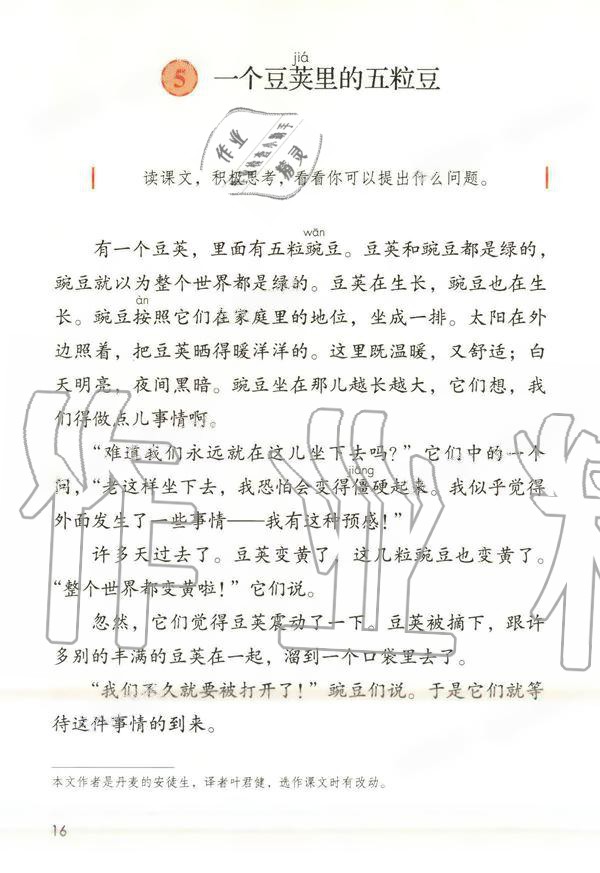 jiá
5 一个豆荚里的五粒豆
作业
检查小助手
精灵
读课文，积极思考，看看你可以提出什么问题。
wān
有一个豆荚，里面有五粒豌豆。豆荚和豌豆都是绿的，
豌豆就以为整个世界都是绿的。豆荚在生长，豌豆也在生
àn
长。豌豆按照它们在家庭里的地位，坐成一排。太阳在外
边照着，把豆荚晒得暖洋洋的。这里既温暖，又舒适；白
天明亮，夜间黑暗。豌豆坐在那儿越长越大，它们想，我
们得做点儿事情啊。
“难道我们永远就在这儿坐下去吗？”它们中的一个
jiāng
问，“老这样坐下去，我恐怕会变得僵硬起来。我似乎觉得
外面发生了一些事情——我有这种预感！”
许多天过去了。豆荚变黄了，这几粒豌豆也变黄了。
“整个世界都变黄啦！”它们说。
忽然，它们觉得豆荚震动了一下。豆荚被摘下，跟许
多别的丰满的豆荚在一起，溜到一个口袋里去了。
“我们不久就要被打开了！”豌豆们说。于是它们就等
待这件事情的到来。
作业精
本文作者是丹麦的安徒生，译者叶君健，选作课文时有改动。
16